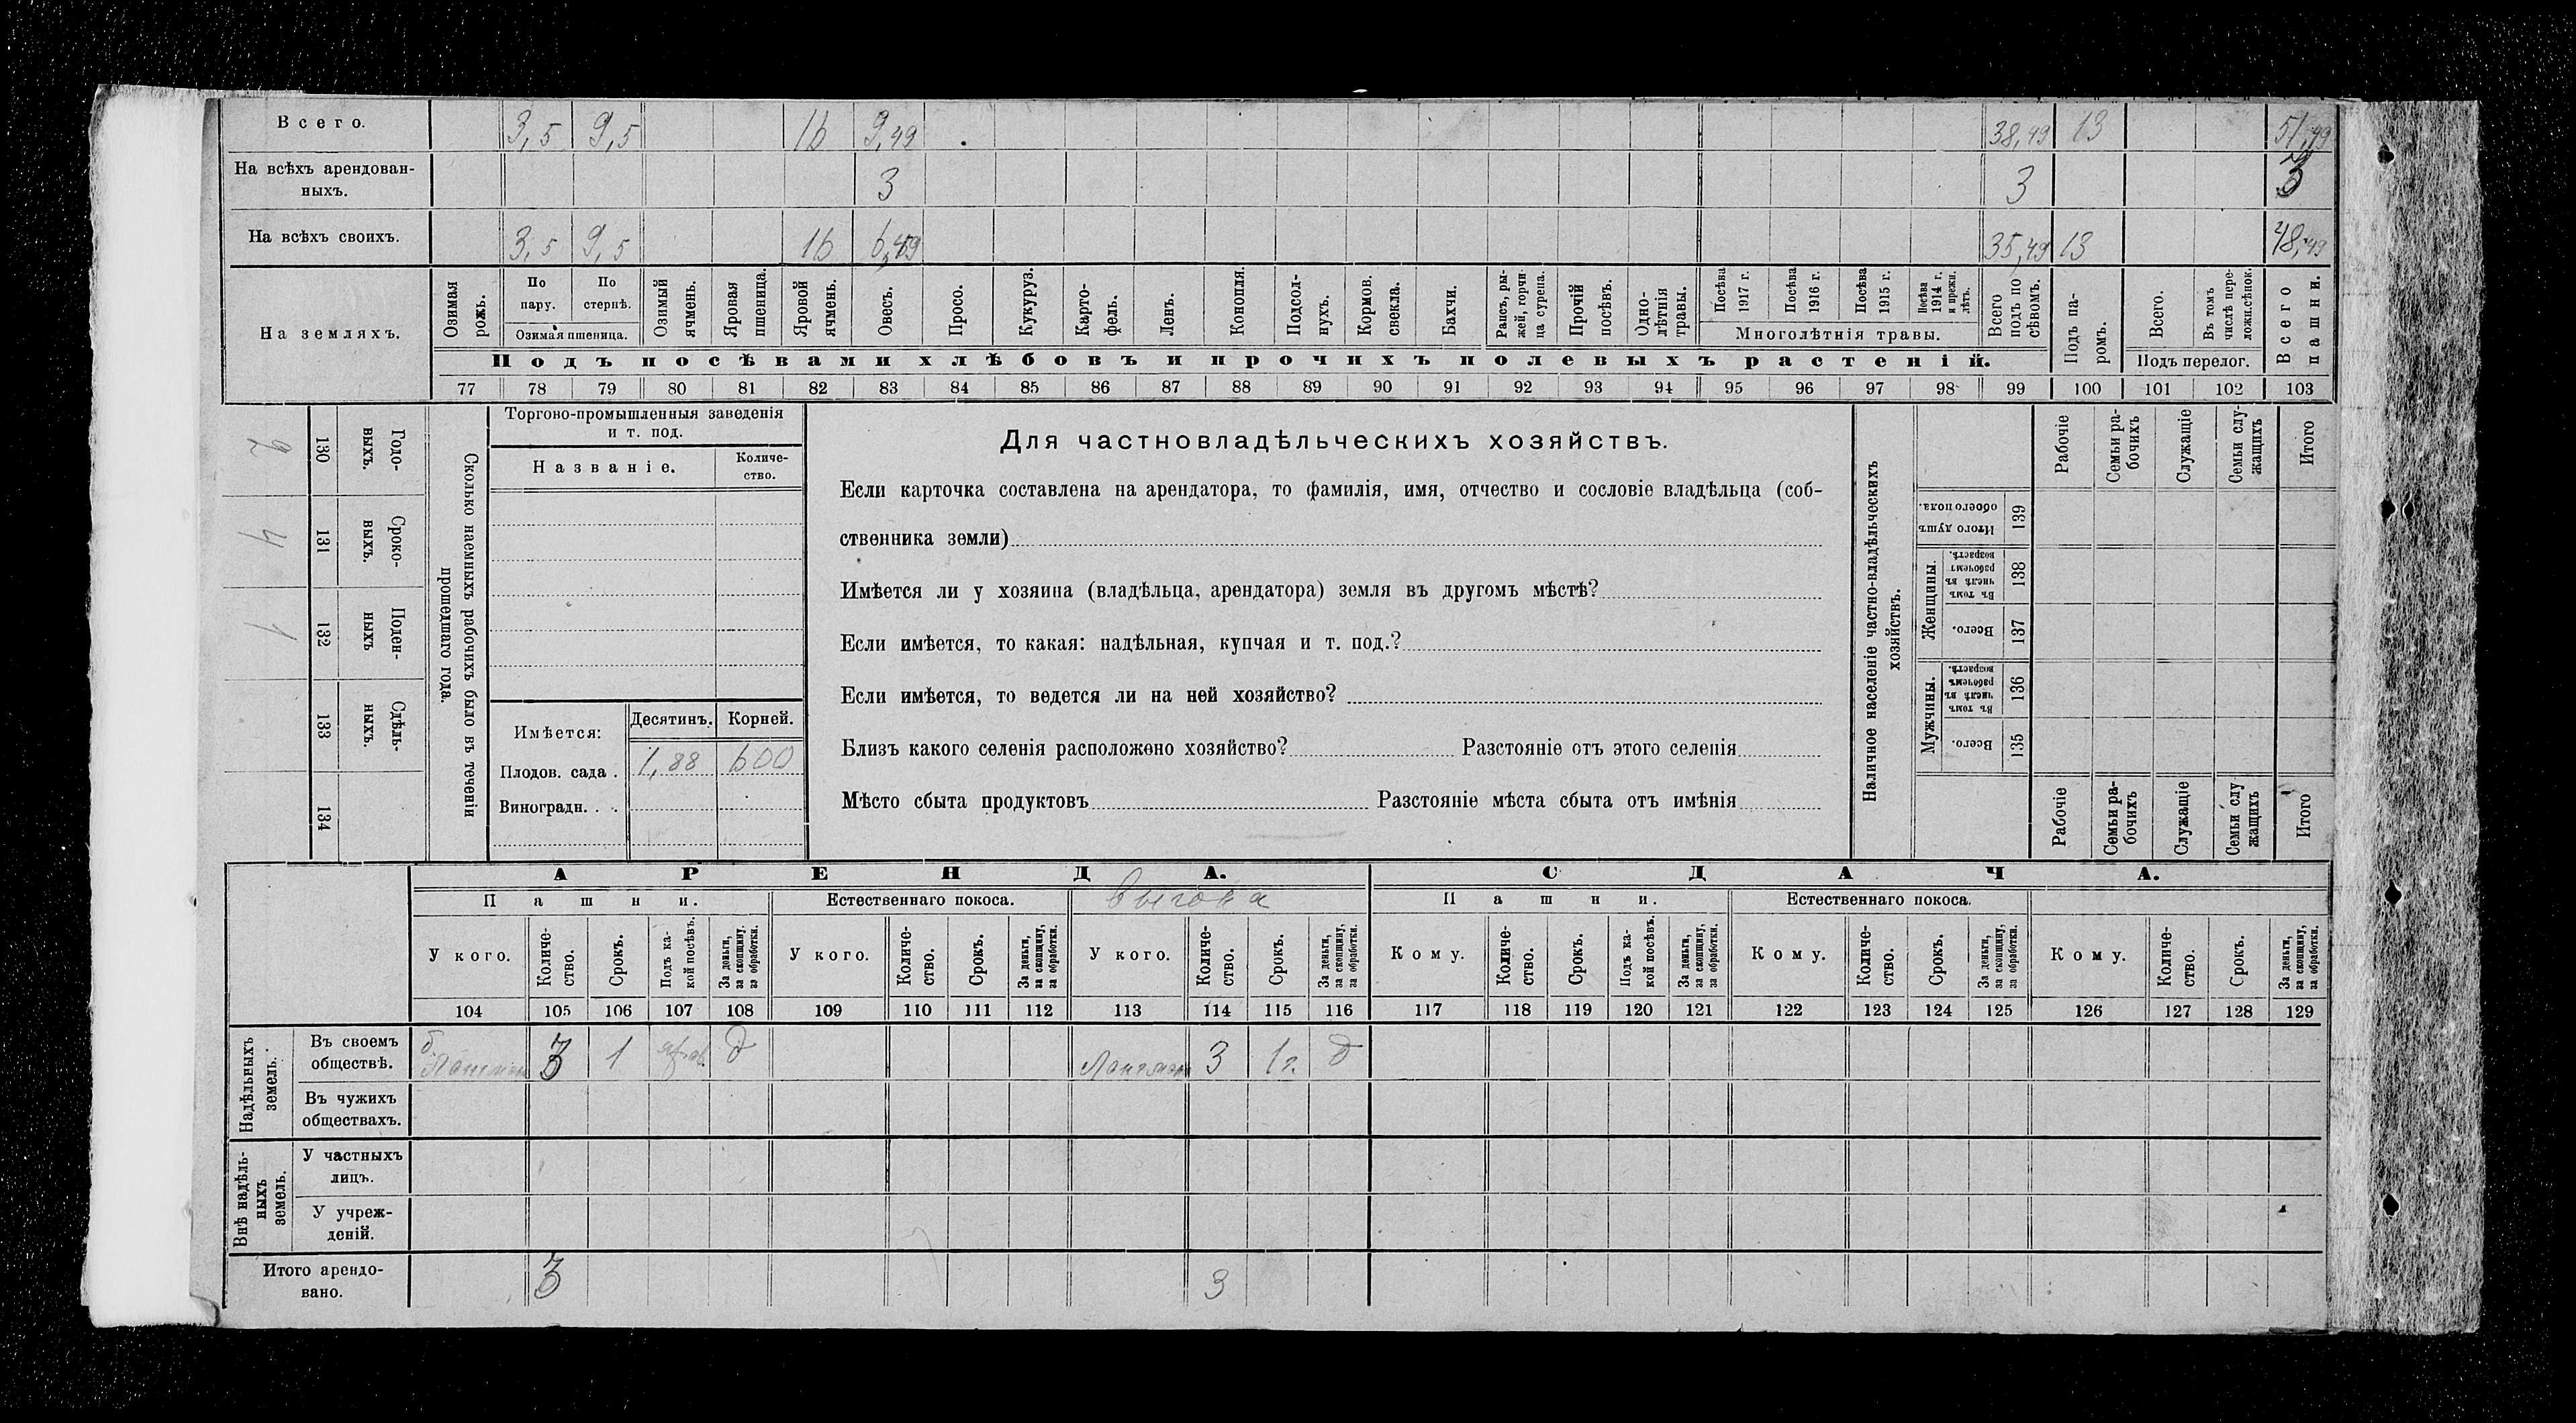 Всего. 3,5 9,5 16 9,49 38,49 13 51,49
На всѣхъ арендован- 3 3 3
ныхъ.
На всѣхъ своихъ. 3,5 9,5 16 6,49 35,49 13 48,49
На земляхъ.
Озимая рожь.
По пару.
По стернѣ.
Озимая пшеница.
Озимый ячмень.
Яровая пшеница.
Яровой ячмень.
Овесъ.
Просо.
Кукуруз.
Карто-
фель.
Ленъ.
Конопля.
Подсол-
нухъ.
Кормов. свекла.
Бахчи.
Рапсъ, ры-
жей, горчи-
ца сурепа.
Прочій посѣвъ.
Одно-
лѣтнія травы.
Посѣва 1917 г.
Посѣва 1916 г.
Посѣва 1915 г.
Посѣва 1914 г. и прежн. лѣтъ.
Многолѣтнія травы.
Всего подъ по
сѣвомъ.
Подъ па-
ромъ.
Всего.
Въ томъ числѣ пере-
ложн.сѣнок.
Подъ перелог.
Всего пашни.
Подъ посѣвами хлѣбовъ и прочихъ полевыхъ растеній.
77 78 79 80 81 82 83 84 85 86 87 88 89 90 91 92 93 94 95 96 97 98 99 100 101 102 103
Сколько наемныхъ рабочихъ было въ теченіи
прошедшаго года.
Годо-
выхъ.
130
2
Сроко-
выхъ.
131
4
Поден-
ныхъ
132
1
Сдѣль-
ныхъ.
133
134
Торгово-промышленныя заведенія
и т. под.
Названіе.
Количе-
ство.
Имѣется: Десятинъ. Корней.
Плодов. сада . 1,88 600
Виноградн. . .
Для частновладѣльческихъ хозяйствъ.
Если карточка составлена на арендатора, то фамилія, имя, отчество и сословіе владѣльца (соб-
ственника земли)
Имѣется ли у хозяина (владѣльца, арендатора) земля въ другомъ мѣстѣ?
Если имѣется, то какая: надѣльная, купчая и т. под.?
Если имѣется, то ведется ли на ней хозяйство?
Близъ какого селенія расположено хозяйство? Разстояніе отъ этого селенія
Мѣсто сбыта продуктовъ Разстояніе мѣста сбыта отъ имѣнія
Наличное населеніе частно-владѣльческихъ
хозяйствъ.
Рабочіе
Семьи ра-
бочихъ
Служащіе
Семьи слу-
жащихъ
Итого
Итого душъ
обоего пола.
139
Женщины.
Въ томъ числѣ въ рабочемъ возрастѣ.
138
Всего.
137
Мужчины.
Въ томъ числѣ въ рабочемъ возрастѣ.
136
Всего.
135
Рабочіе
Семьи ра-
бочихъ
Служащіе
Семьи слу
жащихъ
Итого
АРЕНДА. СДАЧА.
Пашни. Естественнаго покоса. выгона Пашни. Естественнаго покоса.
У кого.
Количе-
ство.
Срокъ.
Подъ ка-
кой посѣвъ.
За деньги, за скопщину, за обработки.
У кого.
Количе-
ство.
Срокъ.
За деньги, за скопщину, за обработки.
У кого.
Количе-
ство.
Срокъ.
За деньги, за скопщину, за обработки.
Кому.
Количе-
ство.
Срокъ.
Подъ ка-
кой посѣвъ.
За деньги, за скопщину, за обработки.
Кому.
Количе-
ство.
Срокъ.
За деньги, за скопщину, за обработки.
Кому.
Количе-
ство.
Срокъ.
За деньги, за скопщину, за обработки.
104 105 106 107 108 109 110 111 112 113 114 115 116 117 118 119 120 121 122 123 124 125 126 127 128 129
Надѣльныхъ
земель.
Въ своемъ
обществѣ.
3 1 д 3 1 г. д
Въ чужихъ
обществахъ.
Внѣ надѣль-
ныхъ
земель.
У частныхъ
лицъ.
У учреж-
деній.
Итого арендо-
вано.
3 3